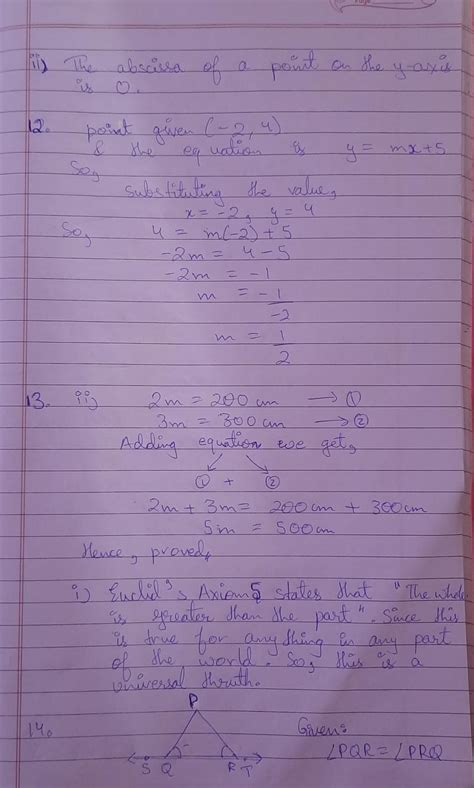 ii) The abscissa of a point on the y-axis
is 0.
12. point given (-2, 4)
& the equation is y = mx+5
So,
substituting the value,
x = -2, y = 4
So, 4 = m(-2) + 5
-2m = 4 - 5
-2m = -1
m = -1/-2
m = 1/2
13. ii) 2m = 200 cm → ①
3m = 300 cm → ②
Adding equation we get,
① + ②
2m + 3m = 200cm + 300cm
5m = 500cm
Hence, proved,
i) Euclid's Axiom 5 states that "The whole
is greater than the part". Since this
is true for anything in any part
of the world. So, this is a
universal thruth.
14. P
Given:
∠PQR = ∠PRQ
S Q R T